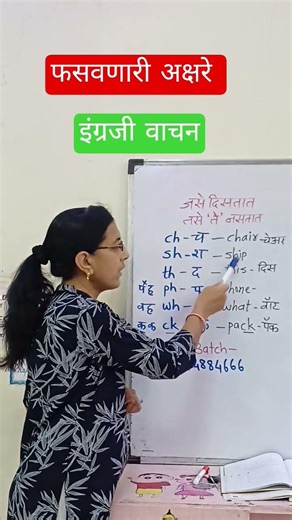 फसवणारी अक्षरे
इंग्रजी वाचन
जसे दिसतात
तसे 'ते' नसतात
ch - च - chair - चेअर
sh - श - ship
th - द - is - दिस
पॅह ph - फ - hone -
वह wh - - what - वॉट
कक ck - - pack - पॅक
Batch -
4884666